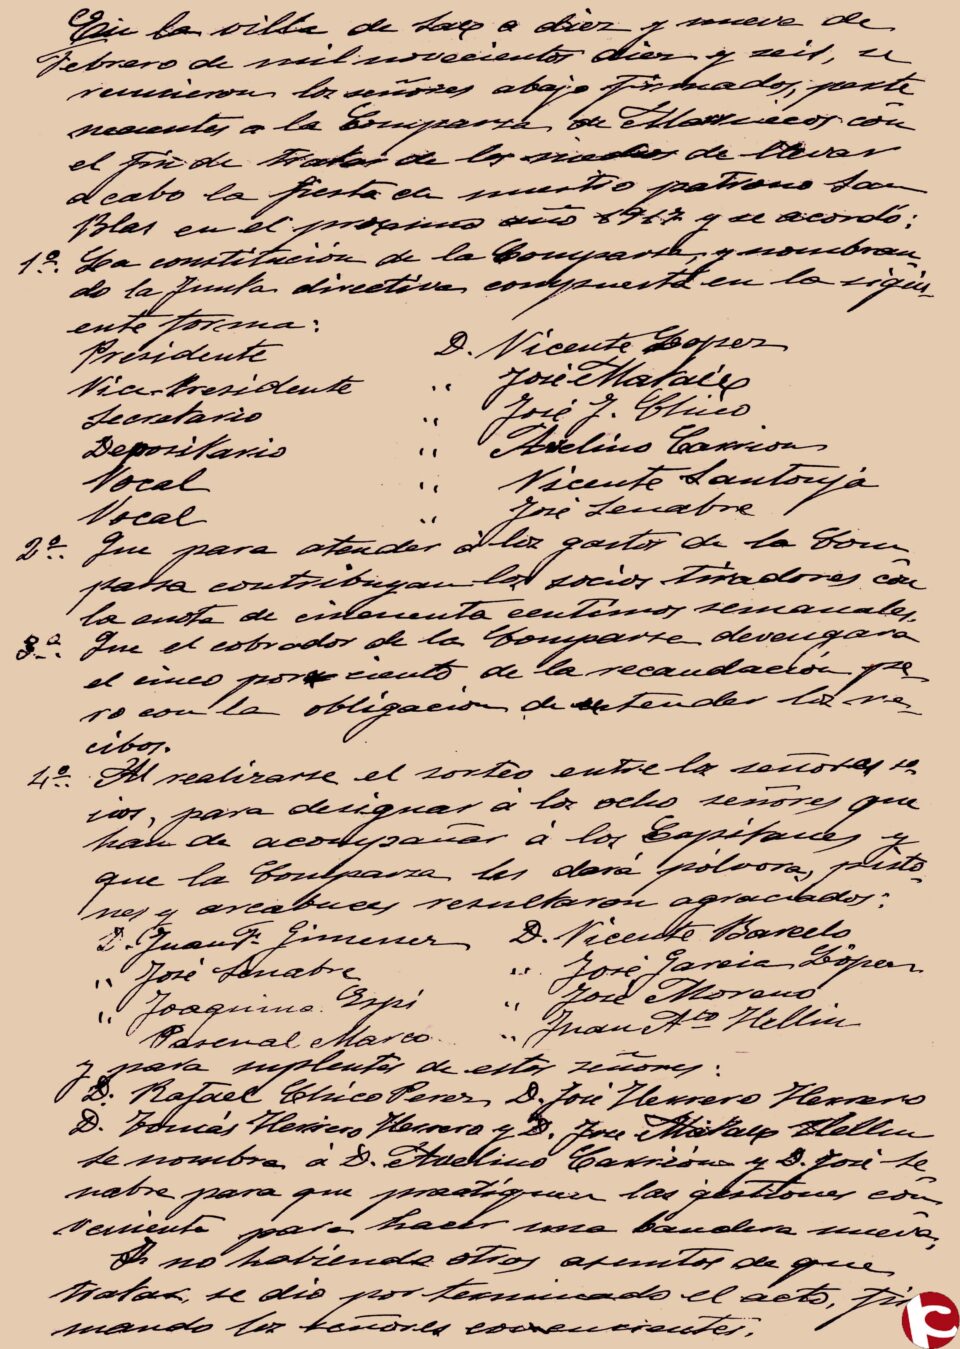 En la villa de Sax a diez y nueve de
Febrero de mil novecientos diez y seis, se
reunieron los señores abajo firmados, perte
necientes a la Comparsa de Marruecos con
el fin de tratar de los medios de llevar
a cabo la fiesta de nuestro patrono San
Blas en el proximo año 1917 y se acordó:
1º. La constitución de la Comparsa, y nombran
do la Junta directiva compuesta en la sigui-
ente forma:
Presidente D. Vicente Lopez
Vice-Presidente " José Mataix
Secretario " José J. Chico
Depositario " Avelino Carrion
Vocal " Vicente Santonja
Vocal " José Senabre
2º. Que para atender á los gastos de la Com
parsa contribuyan los socios tiradores con
la cuota de cincuenta centimos semanales.
3º. Que el cobrador de la Comparsa devengara
el cinco por ciento de la recaudación pe-
ro con la obligacion de estender los re-
cibos.
4º. Al realizarse el sorteo entre los señores so-
cios, para designar á los ocho señores que
han de acompañar á los Capitanes y
que la Comparsa les dará pólvora, pisto-
nes y arcabuces resultaron agraciados:
D. Juan Fº. Gimenez D. Vicente Barcelo
" José Senabre " José Garcia López
" Joaquina Espí " José Moreno
Pascual Marco " Juan Atº Hellin
y para suplentes de estos señores:
D. Rafael Chico Perez, D. José Herrero Herrero
D. Tomás Herrero Herrero y D. Jose Mataix Hellin
se nombra á D. Avelino Carrión y D. José Se
nabre para que practiquen las gestiones con
veniente para hacer una bandera nueva.
Y no habiendo otros asuntos de que
tratar, se dio por terminado el acto, fir
mando los señores concurrentes.